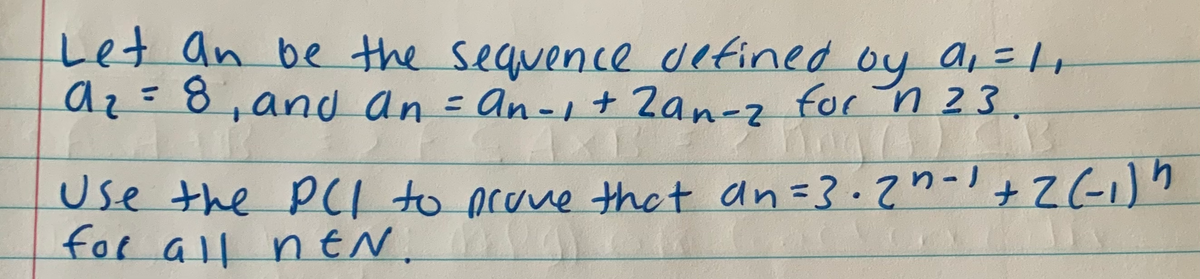 Let an be the sequence defined by a₁ = 1,
a₂ = 8, and an = an-1 + 2an-2 for n ≥ 3.
Use the PCI to prove that an = 3·2ⁿ⁻¹ + 2(-1)ⁿ
for all n ∈ N.